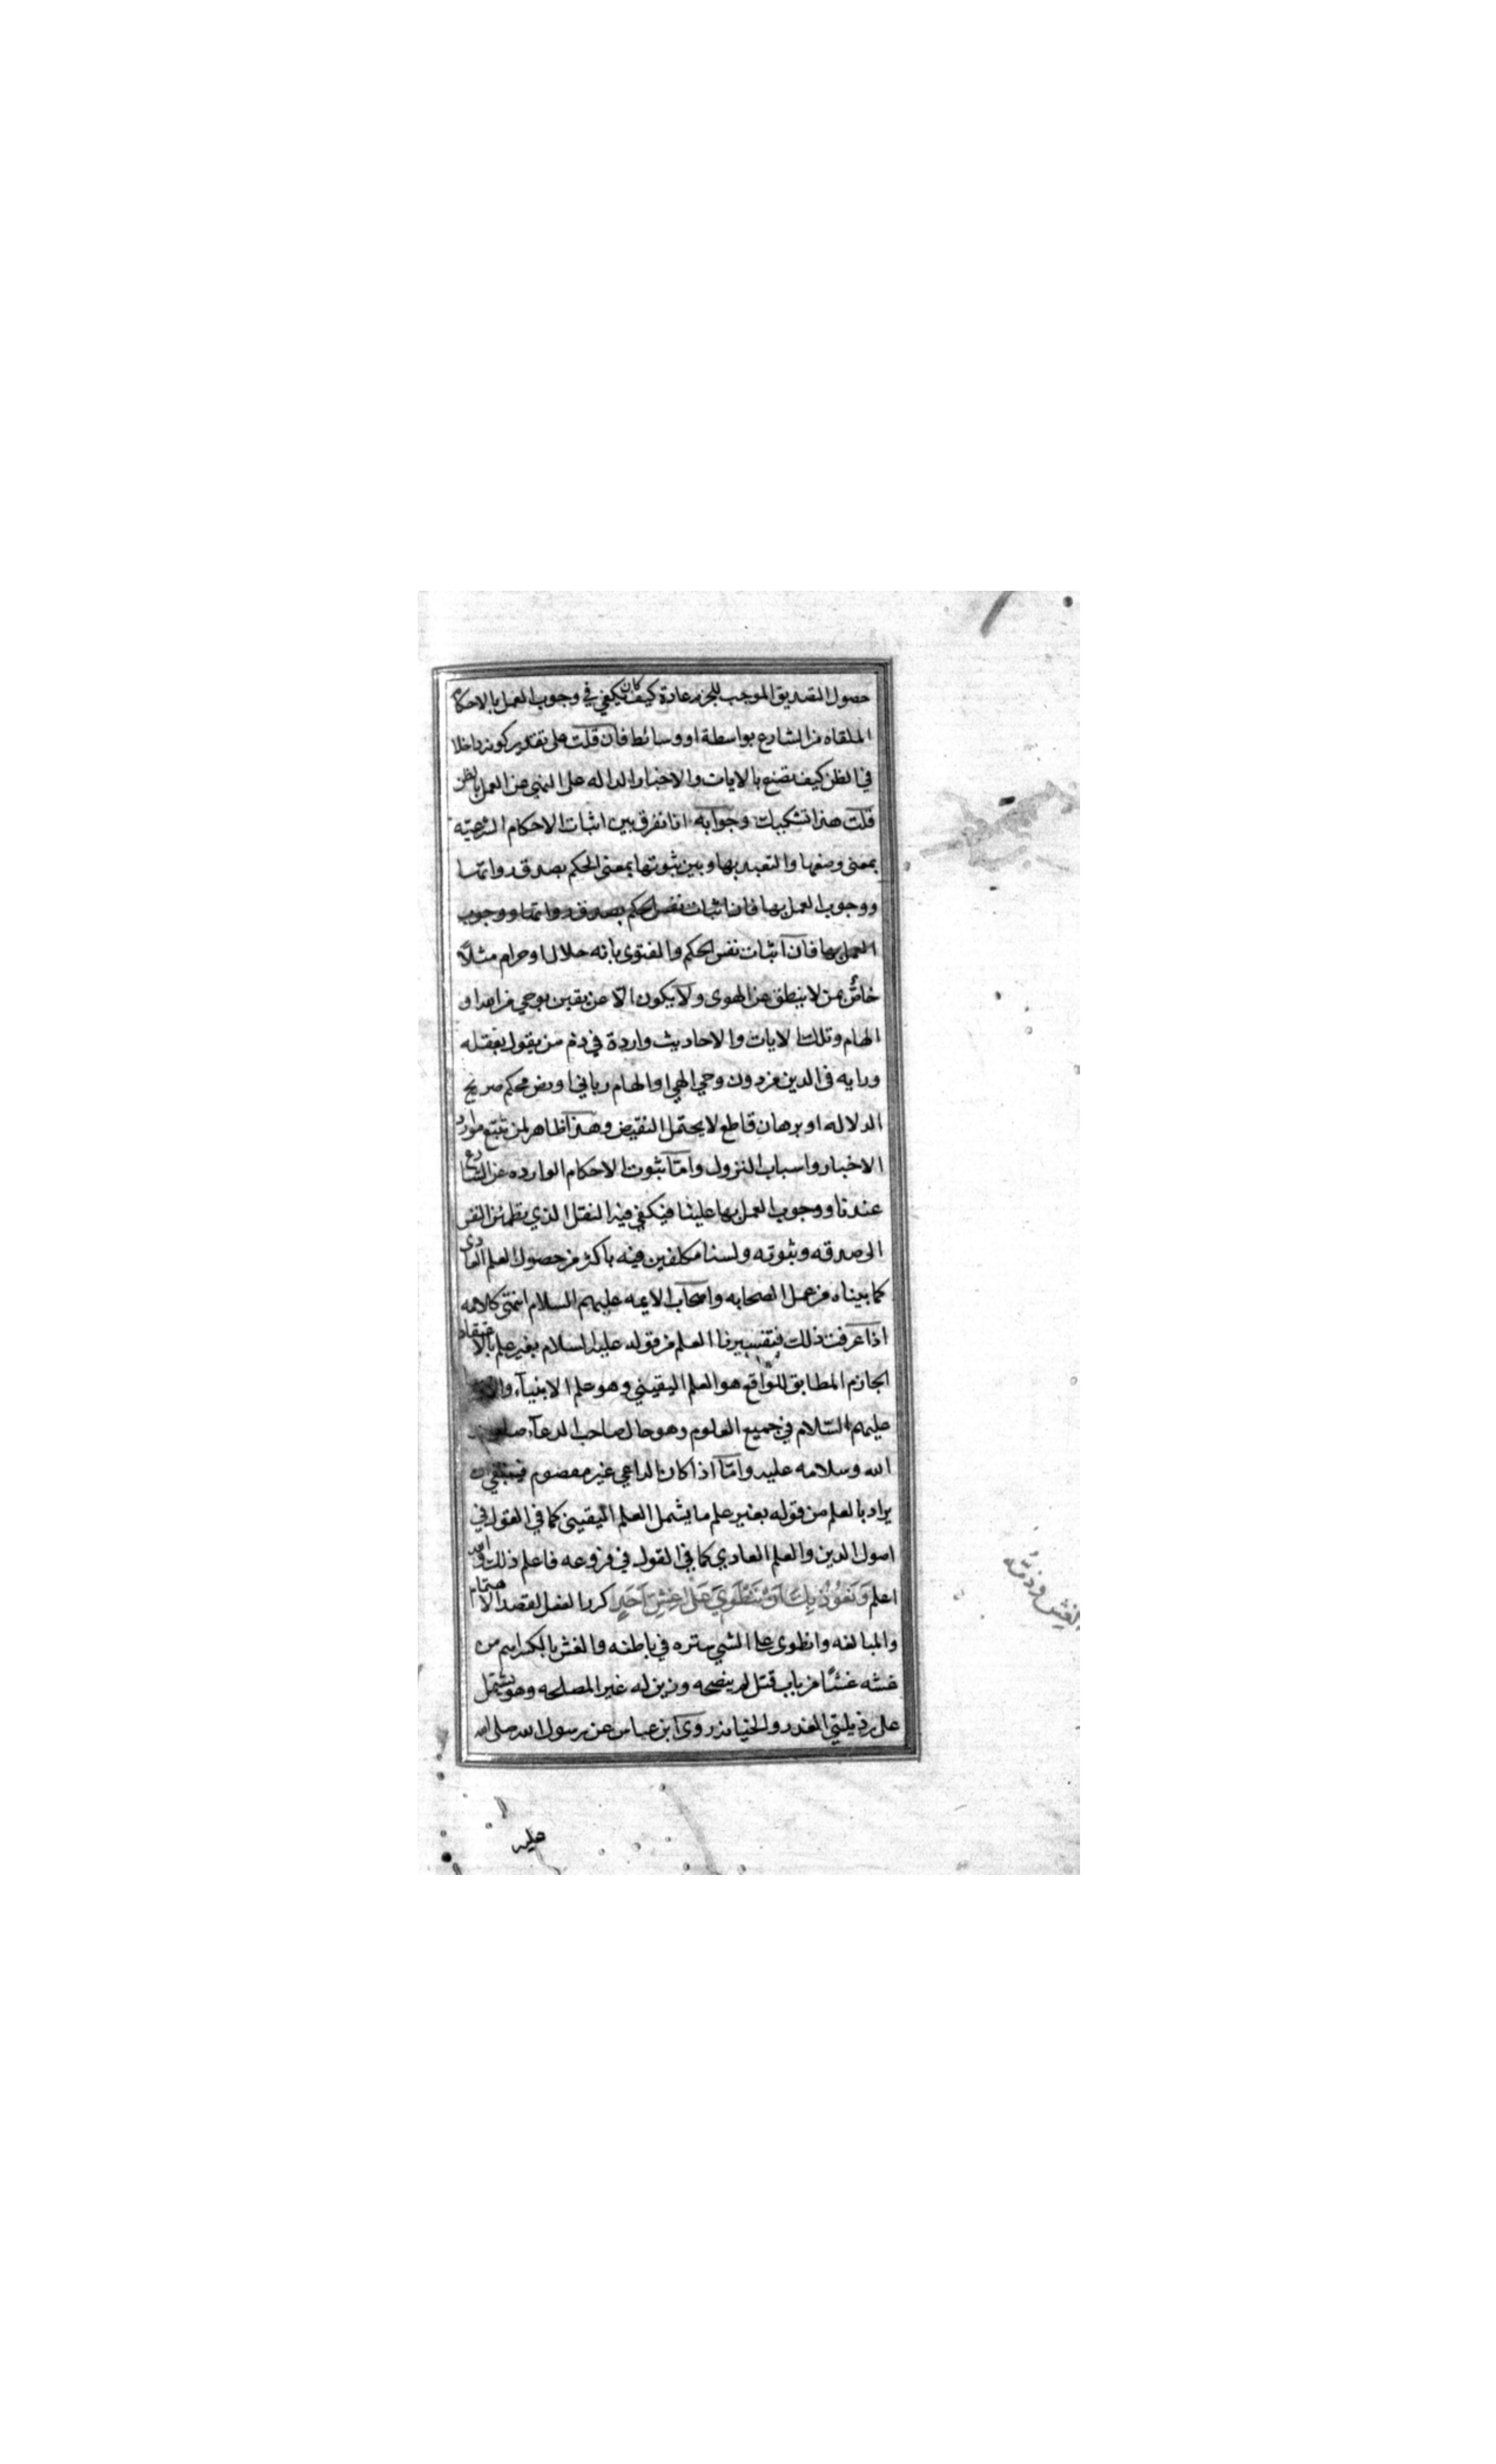 حصول التصديق الموجب للجزم عادة كيف كان يكفي في وجوب العمل بالاحكام
الملقاه من الشارع بواسطة او وسائط فان قلت على تقدير كونه داخلا
في الظن كيف نصنع بالايات والاخبار الداله على النهي عن العمل بالظن
قلت هذا تشكيك وجوابه انا نفرق بين اثبات الاحكام الشرعيه
بمعنى وضعها والتعبد بها وبين ثبوتها بمعنى الحكم بصدق رواتها
ووجوب العمل بها فان اثبات نفس الحكم بصدق رواتها ووجوب
العمل بها فان اثبات نفس الحكم والفتوى بانه حلال او حرام مثلاً
خاصٌّ بمن لا ينطق عن الهوى ولا يكون الا عن يقين بوحي من الله او
الهام وتلك الايات والاحاديث واردة في ذم من يقول بعقله
ورايه في الدين من دون وحي الهي او الهام رباني او نص محكم صريح
الدلاله او برهان قاطع لا يحتمل النقيض وهذا ظاهر لمن تتبع موارد
الاخبار واسباب النزول وامّا ثبوت الاحكام الوارده عن الشارع
عندنا ووجوب العمل بها علينا فيكفي فيه النقل الذي تطمئن النفس
الى صدقه وثبوته ولسنا مكلفين فيه باكثر من حصول العلم العادي
كما بيناه من عمل الصحابه واصحاب الايمه عليهم السلام انتهى كلامه
اذا عرفت ذلك فتفسيرنا العلم من قوله عليه السلام بغير علم بالاعتقاد
الجازم المطابق للواقع هو العلم اليقيني وهو علم الانبياء
عليهم السّلام في جميع العلوم وهو حال صاحب الدعاء صلوات
الله وسلامه عليه وامّا اذا كان الداعي غير معصوم فينبغي ان
يراد بالعلم من قوله بغير علم ما يشمل العلم اليقيني كما في القول في
اصول الدين والعلم العادي كما في القول في فروعه فاعلم ذلك والله
اعلم وَنَعُوذُ بِكَ اَنْ نَنْطَوِيَ عَلى غِشِّ اَحَدٍ كرر الفعل لقصد الاهتمام
والمبالغه وانطوى على الشي ستره في باطنه والغش بالكسر اسم من
غشه غشًّا من باب قتل لم ينصحه وزين له غير المصلحه وهو يشتمل
على رذيلتي الغدر والخيانه روى ابن عباس عن رسول الله صلى الله
عليه
الغش وذمّه